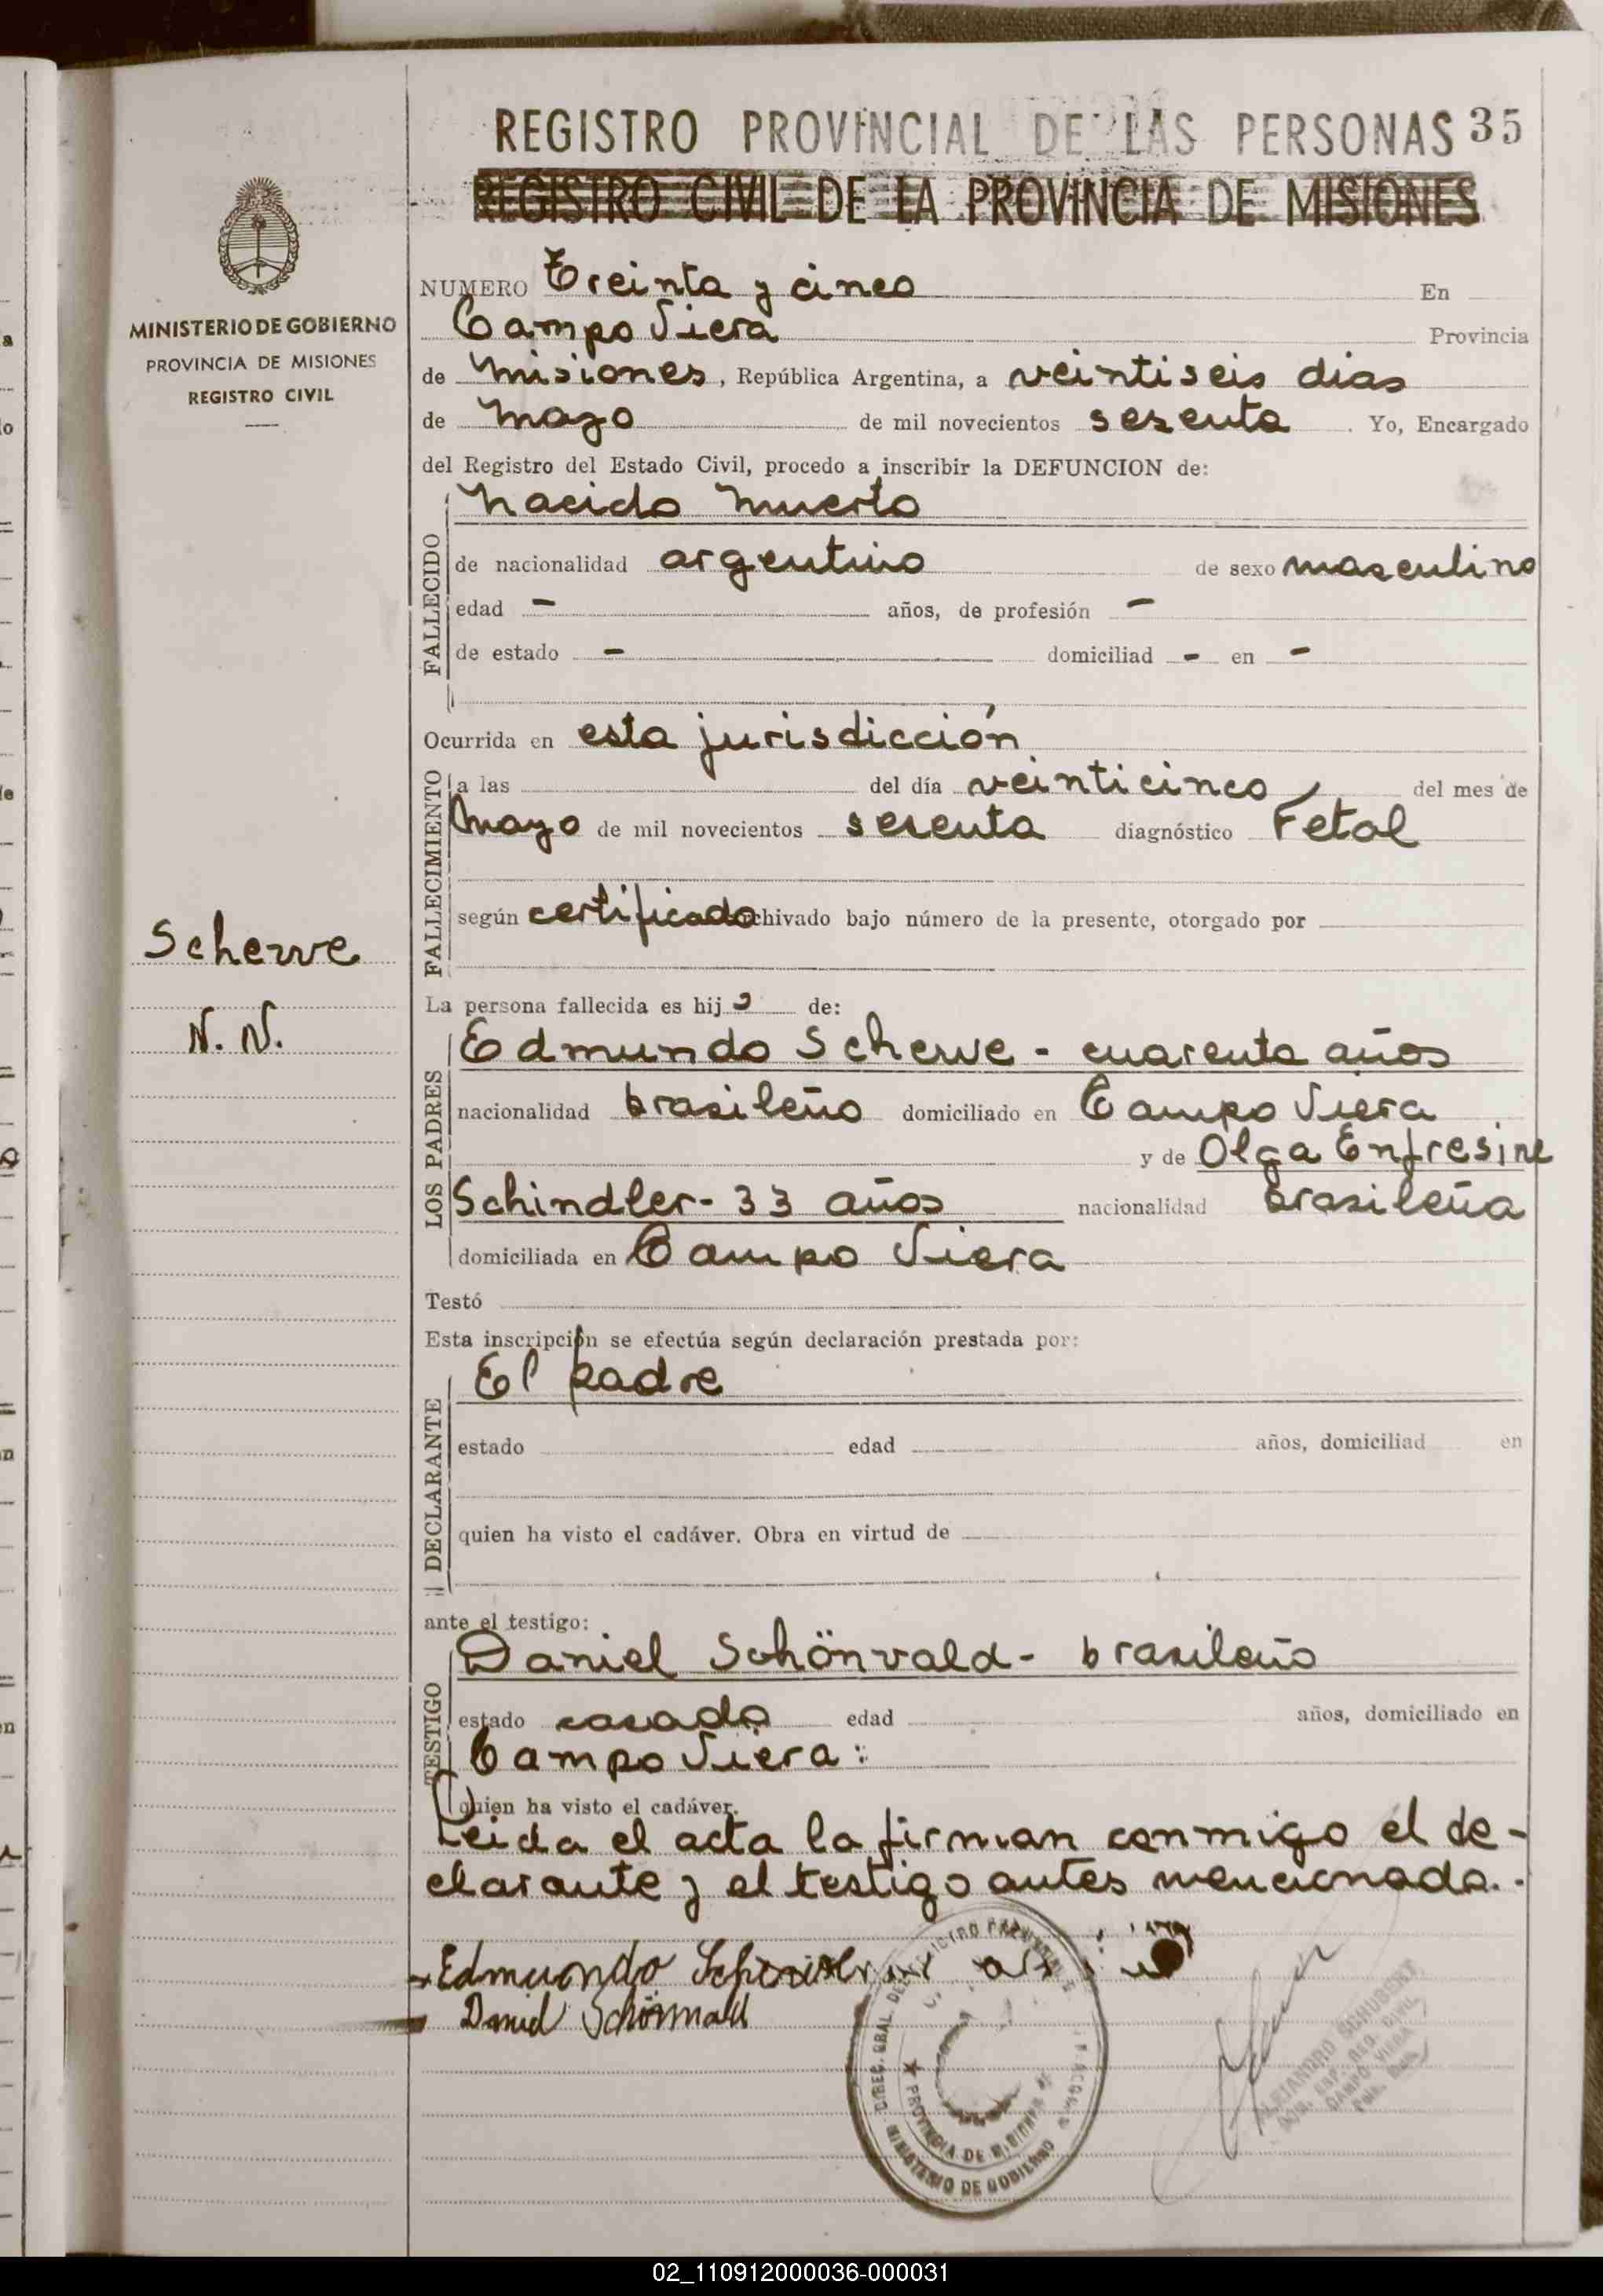 REGISTRO PROVINCIAL DE LAS PERSONAS 35
REGISTRO CIVIL DE LA PROVINCIA DE MISIONES
MINISTERIO DE GOBIERNO
PROVINCIA DE MISIONES
REGISTRO CIVIL
NUMERO Treinta y cinco En
Campo Viera Provincia
de Misiones, República Argentina, a veintiseis dias
de Mayo de mil novecientos sesenta. Yo, Encargado
del Registro del Estado Civil, procedo a inscribir la DEFUNCION de:
FALLECIDO
Nacido Muerto
de nacionalidad argentino de sexo masculino
edad - años, de profesión -
de estado - domiciliad - en -
Ocurrida en esta jurisdicción
FALLECIMIENTO
a las del día veinticinco del mes de
Mayo de mil novecientos sesenta diagnóstico Fetal
según certificado archivado bajo número de la presente, otorgado por
Scherve
N. N.
La persona fallecida es hijo de:
LOS PADRES
Edmundo Scherve - cuarenta años
nacionalidad brasileño domiciliado en Campo Viera
y de Olga Enfresine
Schindler - 33 años nacionalidad brasileña
domiciliada en Campo Viera
Testó
Esta inscripción se efectúa según declaración prestada por:
DECLARANTE
El padre
estado edad años, domiciliad en
quien ha visto el cadáver. Obra en virtud de
ante el testigo:
TESTIGO
Daniel Schönvald - brasileño
estado casado edad años, domiciliado en
Campo Viera:
quien ha visto el cadáver.
Leida el acta la firman conmigo el de-
clarante y el testigo antes mencionado.-
Edmundo
Daniel
DIREC. GRAL. DEL REGISTRO
PROVINCIA DE MISIONES
MINISTERIO DE GOBIERNO
ALEJANDRO SCHUBERT
REG. CIVIL
CAMPO VIERA
02_110912000036-000031